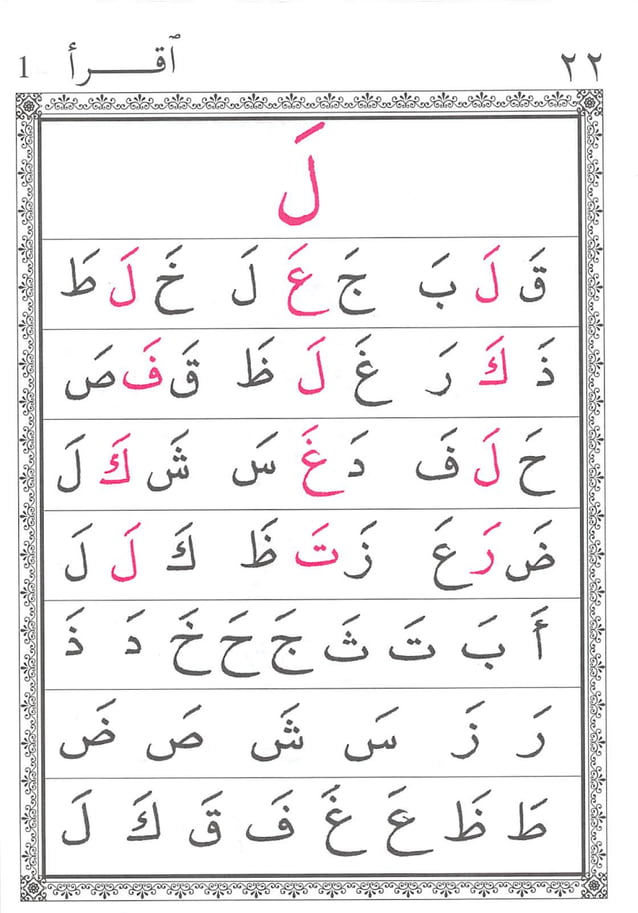 ٢٢ ٱقـــرأ 1
لَ
قَ لَ بَ جَ عَ لَ خَ لَ طَ
ذَ كَ رَ غَ لَ ظَ قَ فَ صَ
حَ لَ فَ دَ غَ سَ شَ كَ لَ
ضَ رَ عَ زَ تَ ظَ كَ لَ لَ
أَ بَ تَ ثَ جَ حَ خَ دَ ذَ
رَ زَ سَ شَ صَ ضَ
طَ ظَ عَ غَ فَ قَ كَ لَ